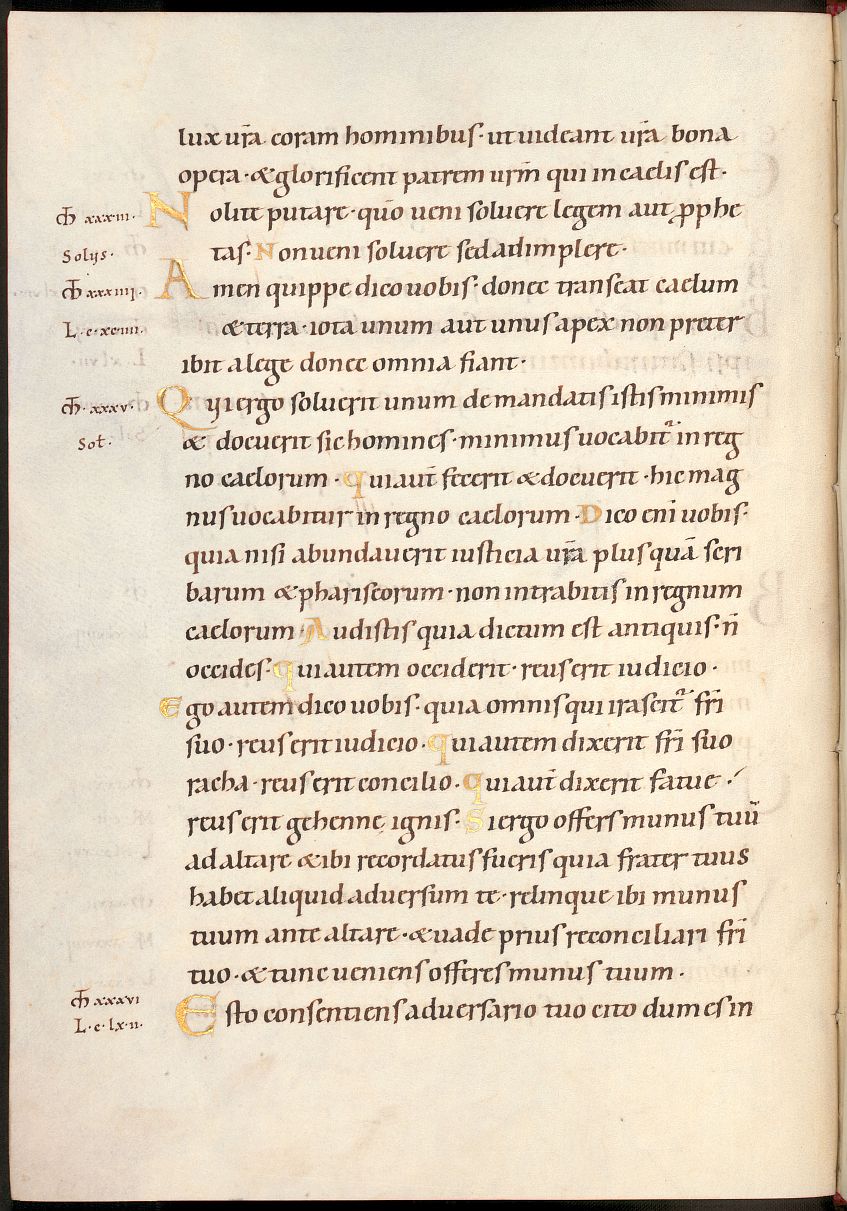 lux ur̄a coram hominibus· ut uideant ur̄a bona
opera· & glorificent patrem urm̄ qui in caelis est·
m̄ xxxiii· Nolite putare· quō ueni soluere legem aut ꝓphe
Solus· tas· Non ueni soluere sed adimplere·
m̄ xxxiiii· Amen quippe dico uobis· donec transeat caelum
L·c·xciiii· & terra· iota unum aut unus apex non preter
ibit a lege donec omnia fiant·
m̄· xxxv· Qui ergo soluerit unum de mandatis istis minimis
Sol· & docuerit sic homines· minimus uocabit᷑ in reg
no caelorum· qui aut̄ fecerit & docuerit· hic mag
nus uocabitur in regno caelorum· Dico eni̅ uobis·
quia nisi abundauerit iusticia ur̄a plus quā scri
barum & phariseorum· non intrabitis in regnum
caelorum· Audistis quia dictum est antiquis· n̄
occides· qui autem occiderit· reus erit iudicio·
Ego autem dico uobis· quia omnis qui irascit᷑ fr̄i
suo· reus erit iudicio· qui autem dixerit fr̄i suo
racha· reus erit concilio· qui aut̄ dixerit fatue·
reus erit gehennę ignis· Si ergo offers munus tuū
ad altare & ibi recordatus fueris quia frater tuus
habet aliquid aduersum te· relinque ibi munus
tuum ante altare· & uade prius reconciliari fr̄i
tuo· & tunc ueniens offeres munus tuum·
m̄ xxxvi
L·c·lx·ii· Esto consentiens aduersario tuo cito dum es in